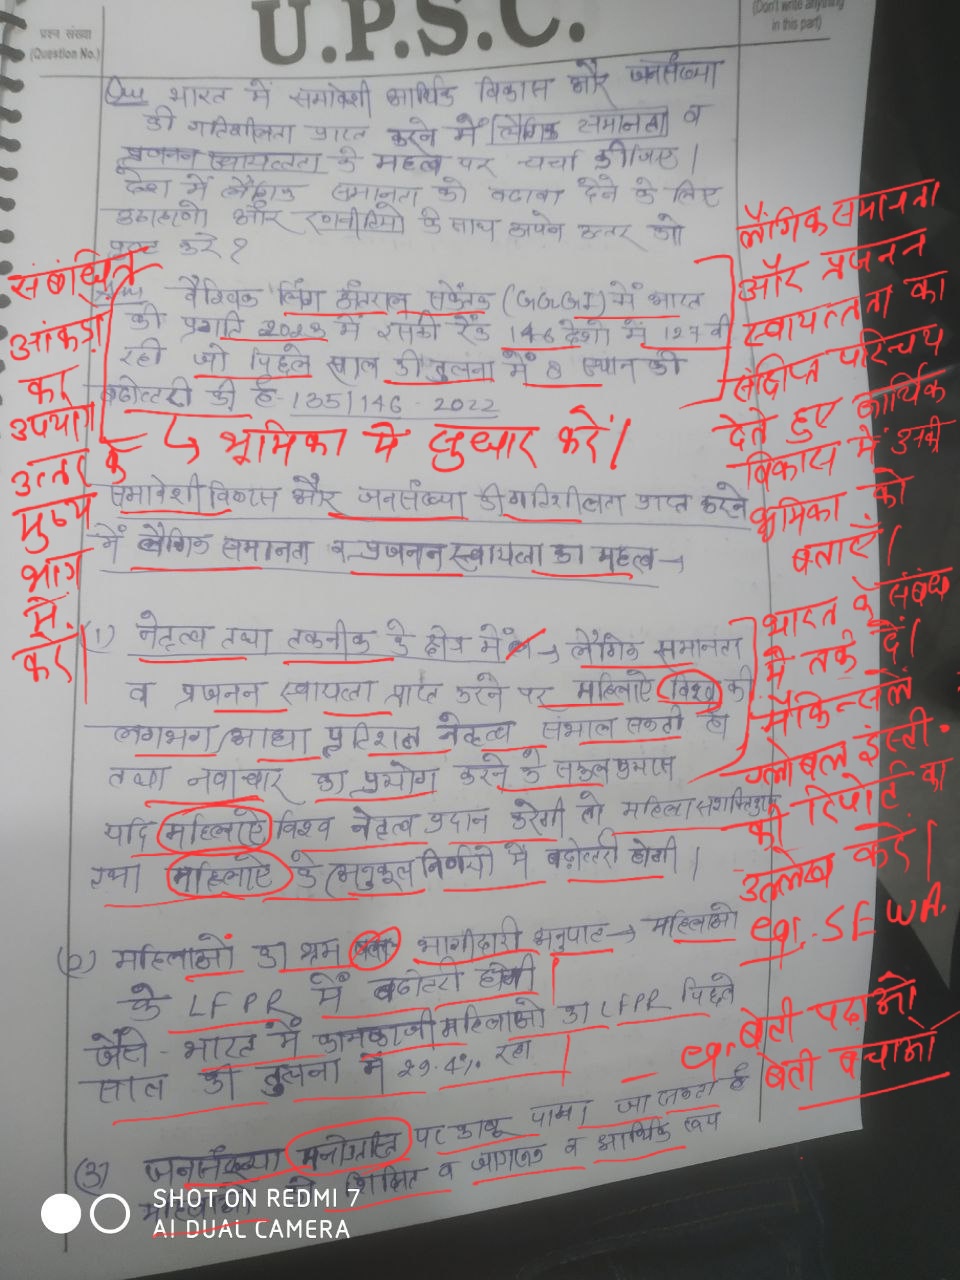 प्रश्न संख्या
(Question No.)
U.P.S.C.
(Don't write anything
in this part)
Que भारत में समावेशी आर्थिक विकास और जनसंख्या
की गतिशीलता प्राप्त करने में लैंगिक समानता व
प्रजनन स्वायत्तता के महत्व पर चर्चा कीजिए।
देश में लैंगिक समानता को बढावा देने के लिए
उदाहरणो और रणनीतियो के साथ अपने उत्तर को
करे ?
वैश्विक लिंग अंतराल सकेंतक (GGGI) में भारत
की प्रगति 2023 में इसकी रैंक 146 देशो में 127 वी
रही जो पिछले साल की तुलना में 8 स्थान की
बढोत्तरी की है - 135/146 - 2022
↳ भूमिका में सुधार करें।
समावेशी विकास और जनसंख्या की गतिशीलता प्राप्त करने
में लैंगिक समानता व प्रजनन स्वायत्ता का महत्व →
(1) नेतृत्व तथा तकनीक के क्षेत्र में → लैंगिक समानता
व प्रजनन स्वायत्ता प्राप्त करने पर महिलाऐ विश्व की
लगभग आधा प्रतिशत नेतृत्व संभाल सकती है
तथा नवाचार का प्रयोग करने के सकुल
यदि महिलाऐ विश्व नेतृत्व प्रदान करेगी तो महिला सशक्तिकरण
तथा महिलाऐ के अनुकूल निर्णयो में बढ़ोत्तरी होगी।
(2) महिलाओं का श्रम बल भागीदारी अनुपात → महिलाओ
के LFPR में बढोत्तरी होगी
जैसे - भारत में कामकाजी महिलाओ का LFPR पिछले
साल की तुलना में 29.4% रहा
(3) जनसंख्या पर काबू पाया जा सकता है
शिक्षित व जागरूक व आर्थिक रूप
संबंधित
आंकड़ो
का
उपयोग
उत्तर के
मुख्य
भाग
में
करें।
लैंगिक समानता
और प्रजनन
स्वायत्तता का
संक्षिप्त परिचय
देते हुए आर्थिक
विकास में उनकी
भूमिका को
बताएँ।
भारत के संबंध
में तर्क दें।
मैकिन्सले
ग्लोबल इंस्टी.
की रिपोर्ट का
उल्लेख करें।
eg. SEWA.
eg. बेटी पढ़ाओ
बेटी बचाओ
SHOT ON REDMI 7
AI DUAL CAMERA